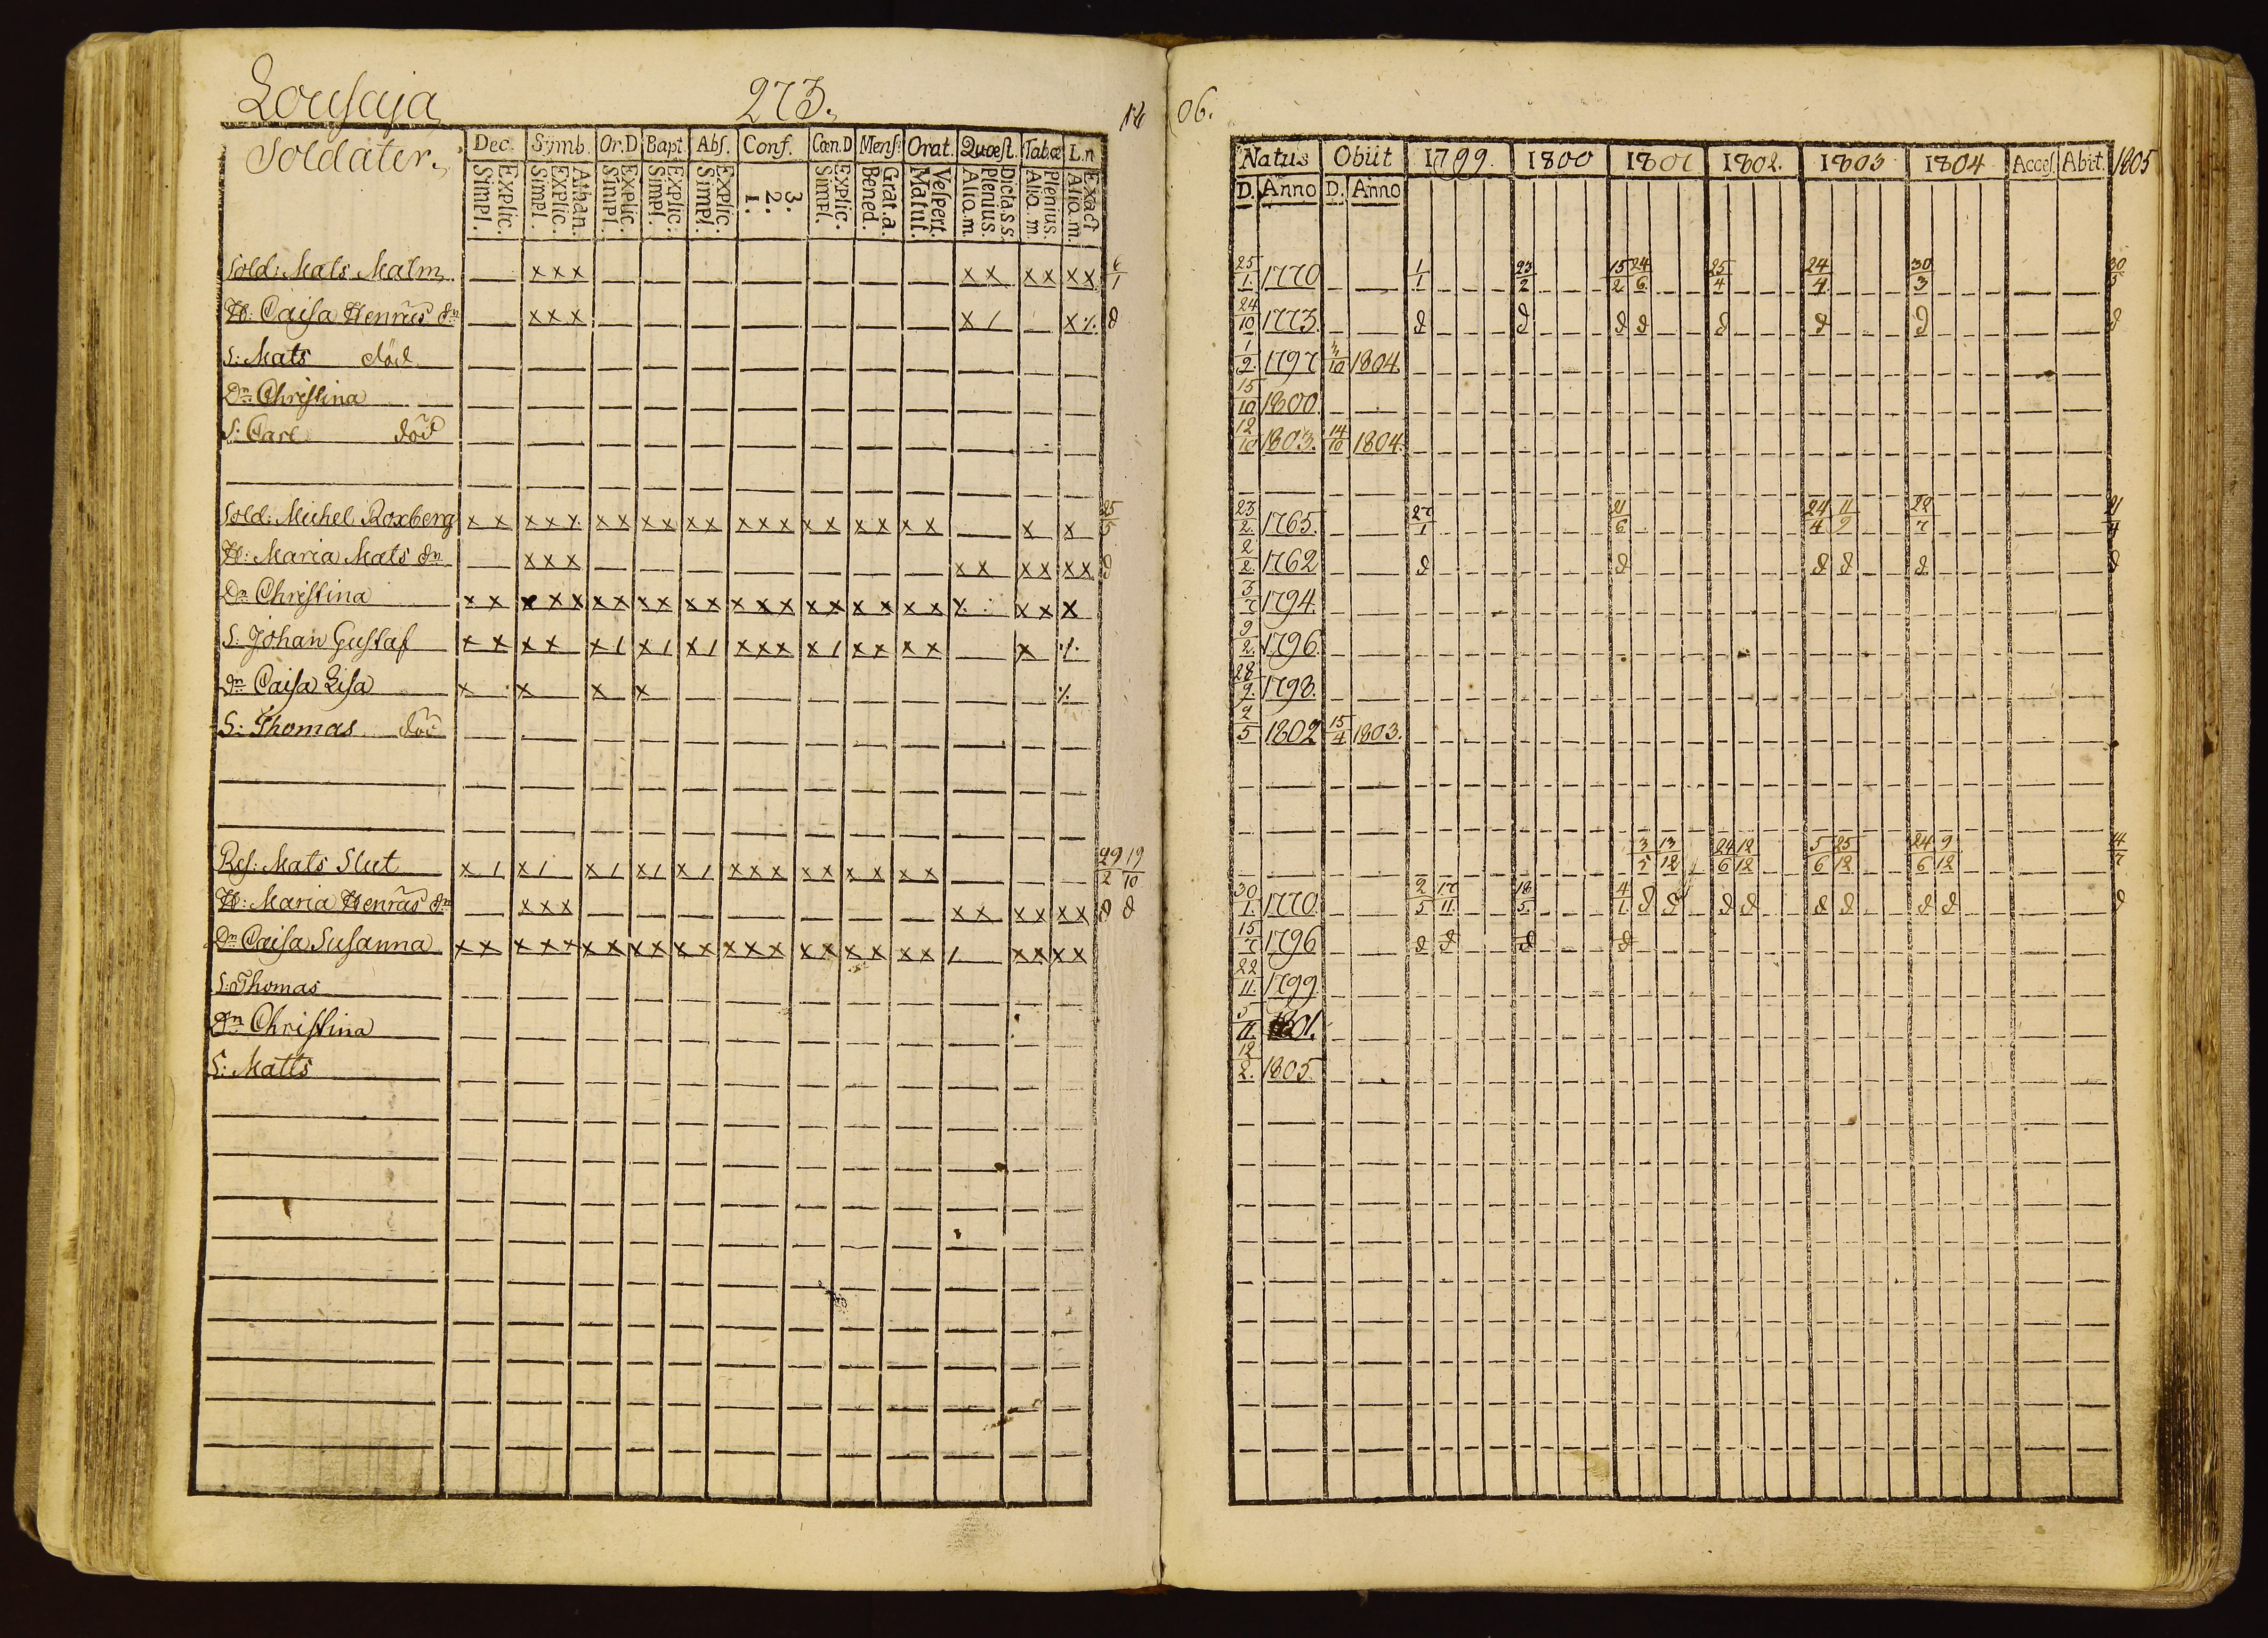 Lousaja 273.
Soldater.
Dec. Symb. Or.D Bapt. Abs. Conf. Cœn.D Mens. Orat. Quæst. Tab.œ L.n
Explic. Simpl. Athan. Explic. Simpl. Explic. Simpl. Explic. Simpl. Explic. Simpl. 3. 2. 1. Explic. Simpl. Grat.a. Bened. Vespert. Matut. Dicta.s.s. Plenius. Alio.m. Plenius. Alio.m. Exact Alio.m.
Sold: Mats Malm x x x x x x x x x 6/1
H: Caisa Henrics dn x x x x / x ⁒ d
S: Mats död
Dn Christina
S: Carl död
Sold: Michel Roxberg x x x x ⁒ x x x x x x x x x x x x x x x x x 25/5
H: Maria Mats dn x x x x x x x x x d
Dn Christina x x x x x x x x x x x x x x x x x x x x ⁒ x x x
S: Johan Gustaf x x x x x / x / x / x x x x / x x x x x ⁒
Dn Caisa Lisa x x x x ⁒
S: Thomas död
Res: Mats Slut x / x / x / x / x / x x x x x x x x x 29/2 19/10
H: Maria Henras dn x x x x x x x x x d d
Dn Caisa Susanna x x x x x x x x x x x x x x x x x x x x / x x x x
S: Thomas
Dn Christina
S: Matts
06.
Natus Obiit 1799. 1800 1801 1802. 1803 1804 Acces. Abit. 1805
D. Anno D. Anno
25/1. 1770 1/1 23/2 15/2 24/6 25/4 24/4 30/3 30/5
24/10 1773. d d d d d d d d
1/9. 1797 1804.
15/10 1800.
12/10 1803. 14/10 1804.
23/2. 1765. 27/1 21/6 24/4 11/9 22/7 21/4
2/2 1762 d d d d d d
3/7 1794.
9/2. 1796.
28/9. 1798.
2/5 1802 15/4 1803.
3/5 13/12 24/6 12/12 5/6 25/12 24/6 9/12 14/7
30/1. 1770 2/5 17/11 18/5 4/1. d d d d d d d d d
15/7 1796 d d d d
22/11. 1799
5/11. 1801.
12/2. 1805